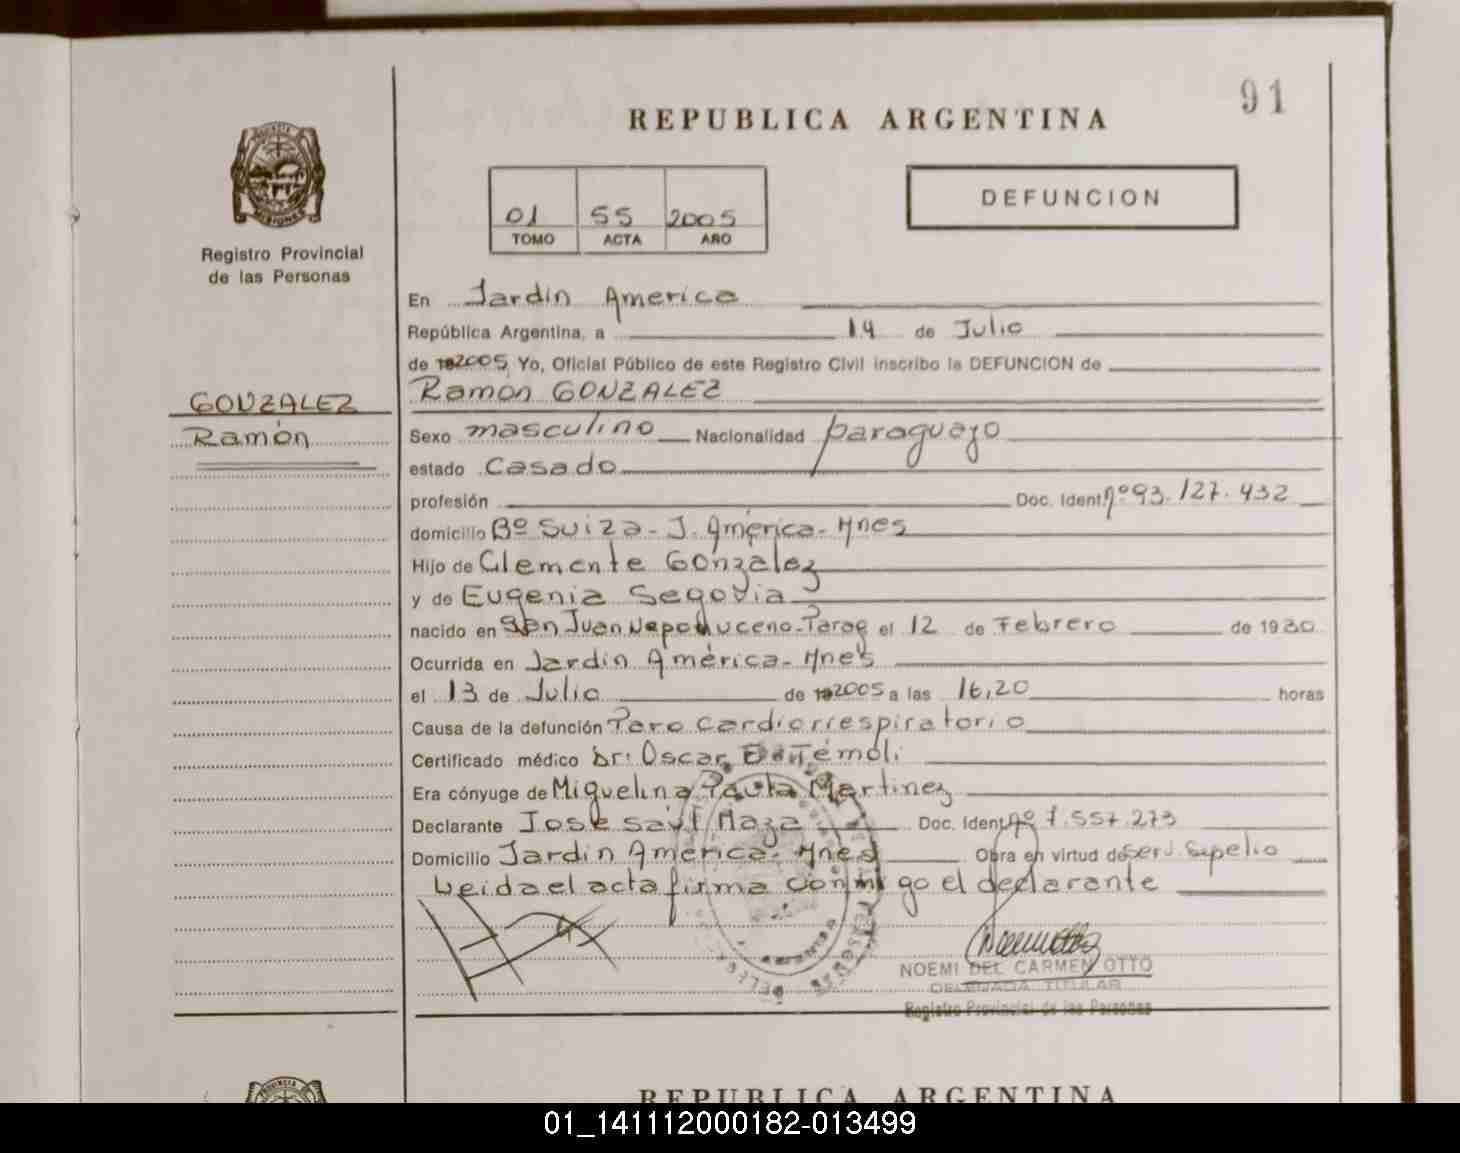 91
REPUBLICA ARGENTINA
DEFUNCION
01 55 2005
TOMO ACTA AÑO
PROVINCIA DE MISIONES
Registro Provincial
de las Personas
GONZALEZ
Ramón
En Jardin America
República Argentina, a 14 de Julio
de 2005, Yo, Oficial Público de este Registro Civil inscribo la DEFUNCION de
Ramon GONZALEZ
Sexo masculino Nacionalidad paraguayo
estado Casado
profesión Doc. Ident. nº 93.127.432
domicilio Bº Suiza - J. América - Mnes
Hijo de Clemente Gonzalez
y de Eugenia Segovia
nacido en San Juan Nepomuceno - Parag el 12 de Febrero de 1930
Ocurrida en Jardin América - Mnes
el 13 de Julio de 2005 a las 16,20 horas
Causa de la defunción Paro Cardiorrespiratorio
Certificado médico Dr: Oscar Témoli
Era cónyuge de Miguelina Paula Martinez
Declarante José Saúl Maza Doc. Ident. nº 7.557.273
Domicilio Jardin America - Mnes Obra en virtud de Serv. Sepelio
Leida el acta firma conmigo el declarante
NOEMI DEL CARMEN OTTO
DELEGADA TITULAR
Registro Provincial de las Personas
PROVINCIA
REPUBLICA ARGENTINA
01_141112000182-013499